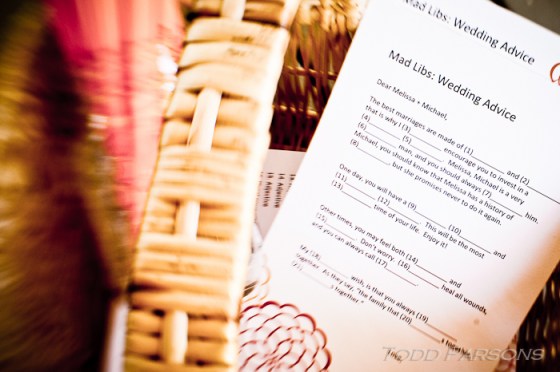 Mad Libs: Wedding Advice
Mad Libs: Wedding Advice
Dear Melissa + Michael,
The best marriages are made of (1)__________ and (2)
__________ that is why I (3)__________ encourage you to invest in a
(4)__________ (5)__________. Melissa, Michael is a very
(6)__________ man, and you should always (7)__________ him.
Michael, you should know that Melissa has a history of
(8)__________ but she promises never to do it again.
One day, you will have a (9)__________ (10)__________ and
(11)__________ (12)__________. This will be the most
(13)__________ time of your life. Enjoy it!
Other times, you may feel both (14)__________ and
(15)__________. Don't worry. (16)__________ heal all wounds,
and you can always call (17)__________.
My (18)__________ wish, is that you always (19)__________
together. As they say, "the family that (20)__________s together,
(21)__________s together."
TODD PARSONS